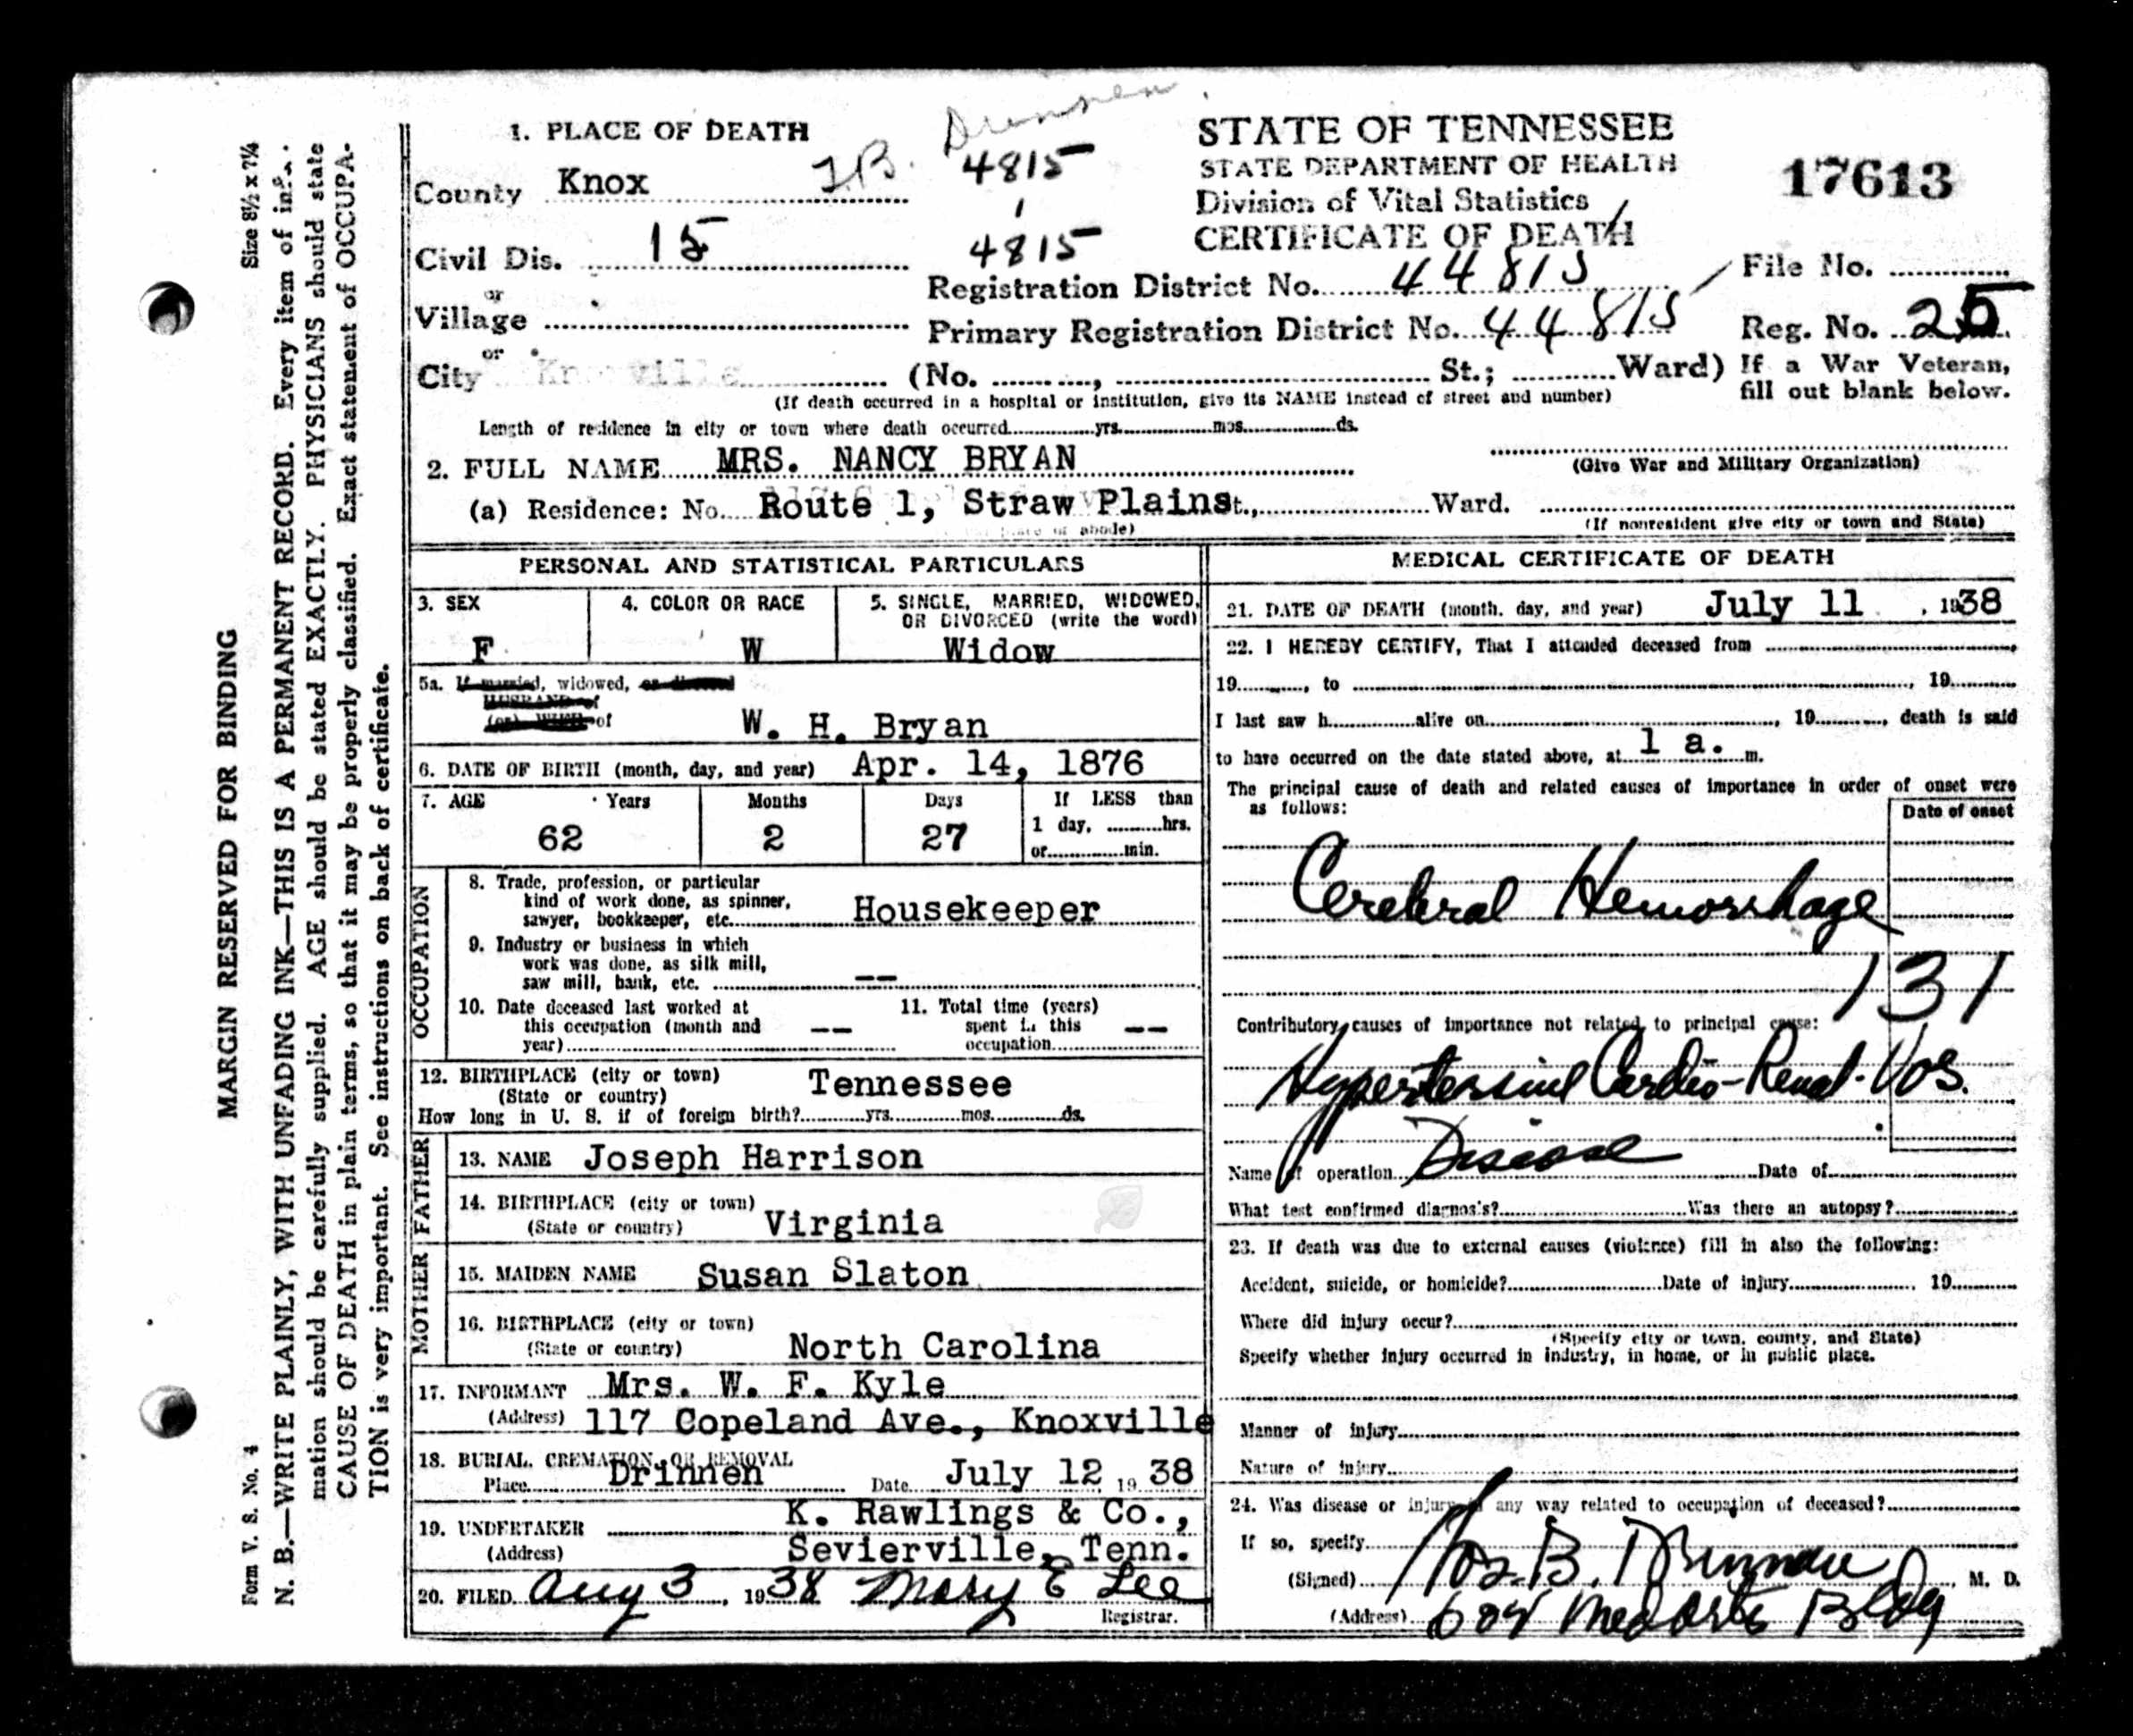 Size 8½ x 7¼
MARGIN RESERVED FOR BINDING
Form V. S. No. 4
N. B.—WRITE PLAINLY, WITH UNFADING INK—THIS IS A PERMANENT RECORD. Every item of infor-
mation should be carefully supplied. AGE should be stated EXACTLY. PHYSICIANS should state
CAUSE OF DEATH in plain terms, so that it may be properly classified. Exact statement of OCCUPA-
TION is very important. See instructions on back of certificate.
1. PLACE OF DEATH
County Knox
4815
4815
Civil Dis. 15
or
Village
or
City Knoxville (No. , St.; Ward)
(If death occurred in a hospital or institution, give its NAME instead of street and number)
STATE OF TENNESSEE
STATE DEPARTMENT OF HEALTH
Division of Vital Statistics
CERTIFICATE OF DEATH
17613
Registration District No. 44815
File No.
Primary Registration District No. 44815
Reg. No. 25
If a War Veteran,
fill out blank below.
Length of residence in city or town where death occurred yrs. mos. ds.
2. FULL NAME MRS. NANCY BRYAN
(Give War and Military Organization)
(a) Residence: No. Route 1, Straw Plains t., Ward.
(If nonresident give city or town and State)
of abode)
PERSONAL AND STATISTICAL PARTICULARS
3. SEX
F
4. COLOR OR RACE
W
5. SINGLE, MARRIED, WIDOWED,
OR DIVORCED (write the word)
Widow
5a. If married, widowed, or divorced
HUSBAND of
(or) WIFE of
W. H. Bryan
6. DATE OF BIRTH (month, day, and year) Apr. 14, 1876
7. AGE Years Months Days If LESS than
1 day, hrs.
62 2 27
or min.
OCCUPATION
8. Trade, profession, or particular
kind of work done, as spinner,
sawyer, bookkeeper, etc. Housekeeper
9. Industry or business in which
work was done, as silk mill,
saw mill, bank, etc. --
10. Date deceased last worked at
this occupation (month and
year) --
11. Total time (years)
spent in this
occupation --
12. BIRTHPLACE (city or town)
(State or country) Tennessee
How long in U. S. if of foreign birth? yrs. mos. ds.
FATHER
13. NAME Joseph Harrison
14. BIRTHPLACE (city or town)
(State or country) Virginia
MOTHER
15. MAIDEN NAME Susan Slaton
16. BIRTHPLACE (city or town)
(State or country) North Carolina
17. INFORMANT Mrs. W. F. Kyle
(Address) 117 Copeland Ave., Knoxville
18. BURIAL, CREMATION, OR REMOVAL
Place Drinnen Date July 12, 1938
19. UNDERTAKER K. Rawlings & Co.,
(Address) Sevierville, Tenn.
20. FILED Aug 3, 1938 Mary E Lee
Registrar.
MEDICAL CERTIFICATE OF DEATH
21. DATE OF DEATH (month, day, and year) July 11, 1938
22. I HEREBY CERTIFY, That I attended deceased from
19 , to , 19
I last saw h alive on , 19 , death is said
to have occurred on the date stated above, at 1 a. m.
The principal cause of death and related causes of importance in order of onset were
as follows:
Date of onset
Cerebral Hemorrhage
131
Contributory causes of importance not related to principal cause:
Hypertensive Cardio-Renal-Vas.
Disease
Name of operation Date of
What test confirmed diagnosis? Was there an autopsy?
23. If death was due to external causes (violence) fill in also the following:
Accident, suicide, or homicide? Date of injury , 19
Where did injury occur?
(Specify city or town, county, and State)
Specify whether injury occurred in industry, in home, or in public place.
Manner of injury
Nature of injury
24. Was disease or injury in any way related to occupation of deceased?
If so, specify
(Signed) B. , M. D.
(Address) Med Arts Bldg